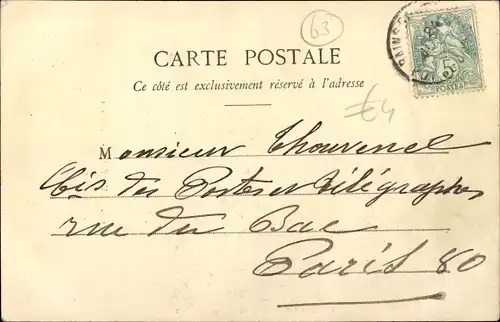 63
CARTE POSTALE
Ce côté est exclusivement réservé à l'adresse
€4
Monsieur Thouvenel
Cis des Postes et Télégraphes
rue du Bac
Paris 80
5
POSTES